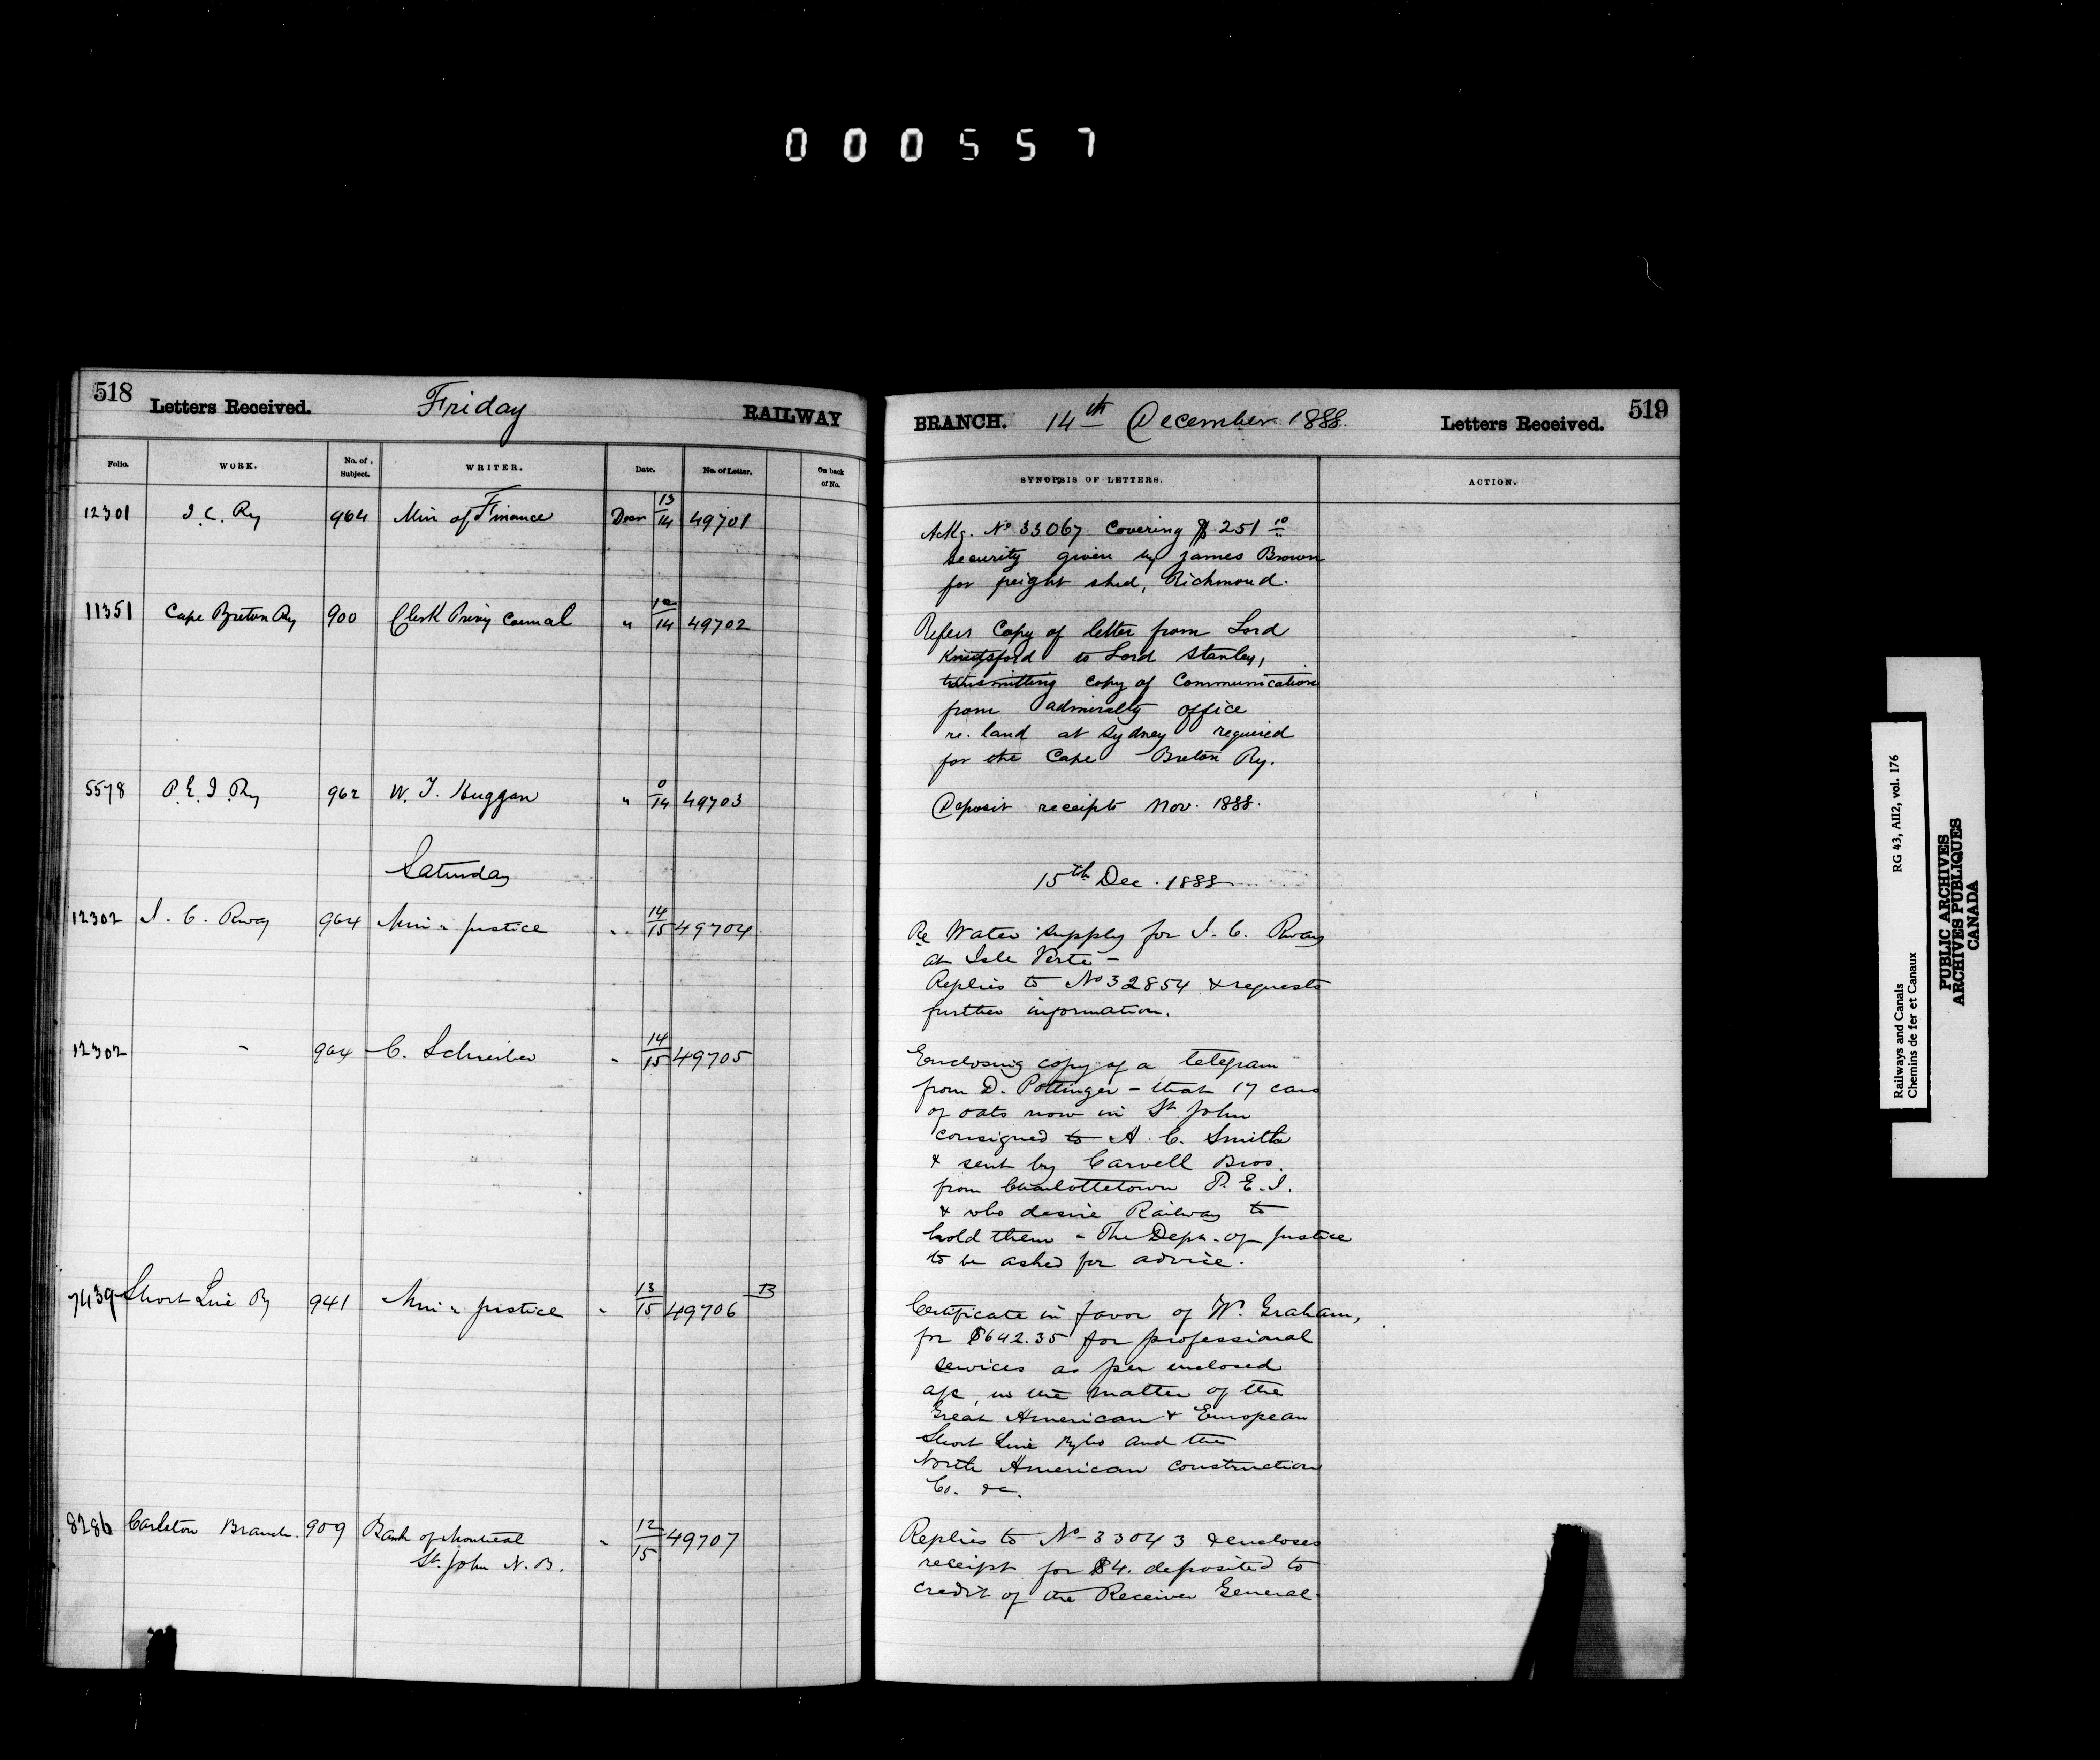 000557
518 Letters Received. Friday RAILWAY
Folio. WORK. No. of Subject. WRITER. Date. No. of Letter. On back of No.
12301 I.C. Ry 964 Min of Finance Decr 13/14 49701
11351 Cape Breton Ry 900 Clerk Privy Council " 12/14 49702
5578 P.E.I. Ry 962 W. T. Huggan " 0/14 49703
Saturday
12302 I. C. Rway 964 Min " Justice " 14/15 49704
12302 " 964 C. Schreiber " 14/15 49705
7439 Short Line Ry 941 Min " Justice " 13/15 49706 B
8286 Carleton Branch. 909 Bank of Montreal " 12/15 49707
St. John N.B.
BRANCH. 14th December 1888. Letters Received. 519
SYNOPSIS OF LETTERS. ACTION.
Ackg. No 33067 Covering $251 10
security given by James Brown
for freight shed, Richmond.
Refers Copy of letter from Lord
Knutsford to Lord Stanley,
transmitting copy of Communication
from admiralty office
re. land at Sydney required
for the Cape Breton Ry.
Deposit receipts Nov. 1888.
15th Dec. 1888
Re Water supply for I. C. Rway
at Isle Verte -
Replies to No 32854 & requests
further information.
Enclosing copy of a telegram
from D. Pottinger - that 17 cars
of oats now in St. John
consigned to A. C. Smith
& sent by Carvell Bros.
from Charlottetown P.E.I.
& who desire Railway to
hold them - The Dept. of Justice
to be asked for advice.
Certificate in favor of W. Graham,
for $642.35 for professional
services as per enclosed
a/c, in the matter of the
Great American & European
Short Line Ry Co and the
North American Construction
Co. &c.
Replies to No 33043 & encloses
receipt for $4. deposited to
credit of the Receiver General.
Railways and Canals RG 43, AII2, vol. 176
Chemins de fer et Canaux
PUBLIC ARCHIVES
ARCHIVES PUBLIQUES
CANADA